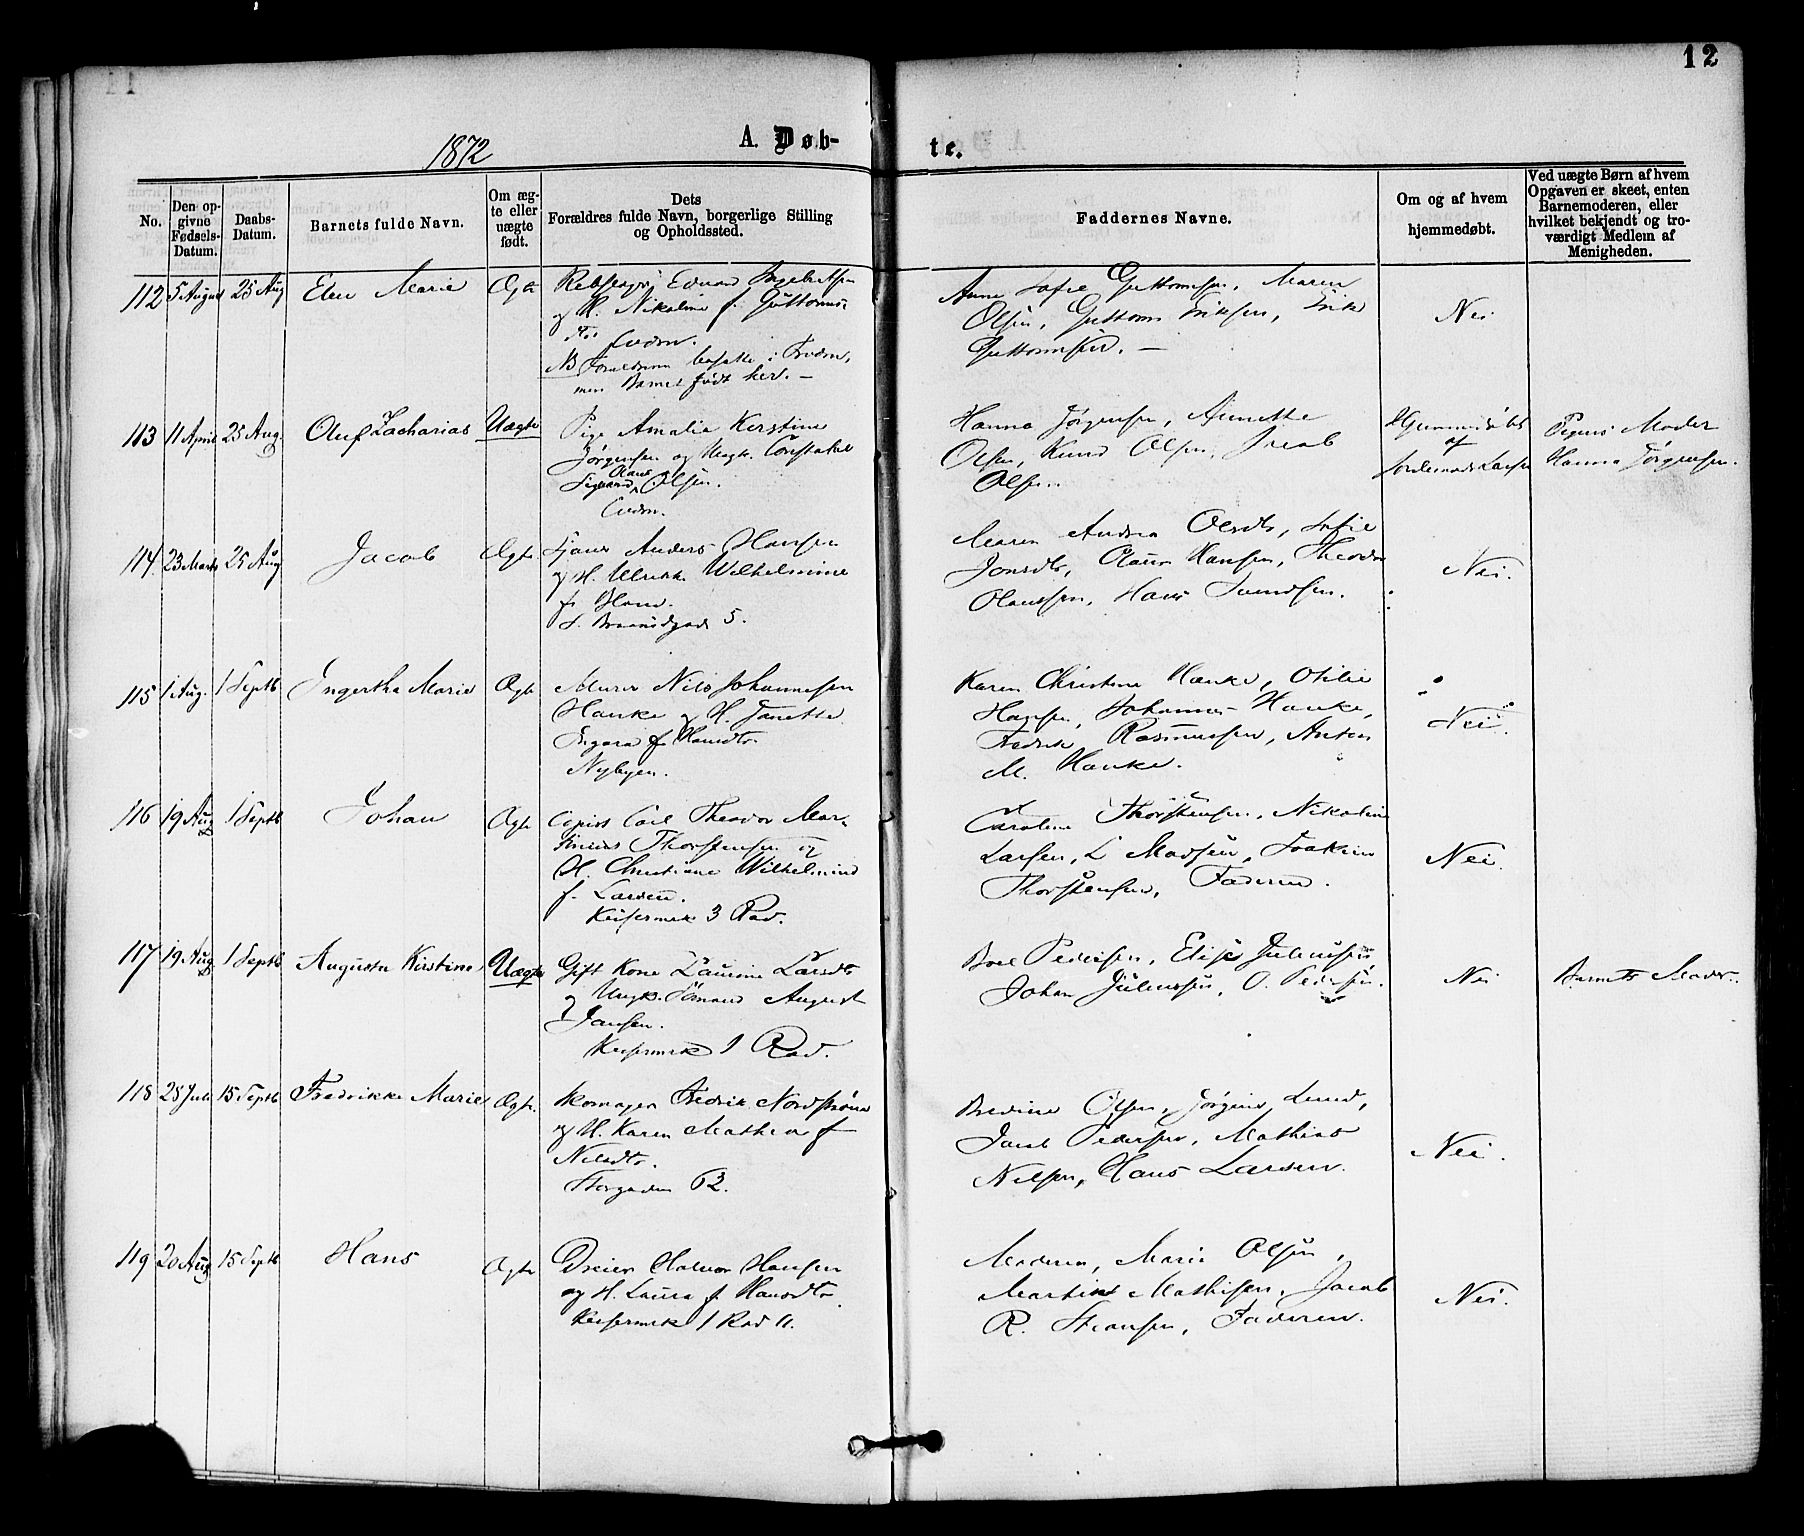 12
1872
A. Døb-
te.
No.
Den op-
givne
Fødsels-
Datum.
Daabs-
Datum.
Barnets fulde Navn.
Om æg-
te eller
uægte
født.
Dets
Forældres fulde Navn, borgerlige Stilling
og Opholdssted.
Faddernes Navne.
Om og af hvem
hjemmedøbt.
Ved uægte Børn af hvem
Opgaven er skeet, enten
Barnemoderen, eller
hvilket bekjendt og tro-
værdigt Medlem af
Menigheden.
112 5 August 25 Aug Elen Marie Ægte
Rebslager Edvard
og H. Nikoline f. Guttorms-
NB Forældrene bosatte i
men Barnet født her. —
Anne Sofie Guttormsen, Maren
Olsen, Guttorm Eriksen, Erik
Guttormsen. —
Nei
113 11 April 25 Aug. Oluf Zacharias Uægte
Pige Amalia Kirstine
Jørgensen og Ungk. Constabel
Sigvard Olaus Olsen.
Hanna Jørgensen, Annette
Olsen, Knud Olsen,
Olsen.
Hjemmedøbt
af
Jordemoder Larsen
Pigens Moder
Hanna Jørgensen.
114 23 Marts 25 Aug Jacob Ægte
Anders Hansen
og H. Ulrikke Wilhelmine
f.
5.
Maren Andrea Olsdtr, Sofie
Jonsdtr, Olaus Hansen, Theodor
Olaussen, Hans
Nei.
115 1 Aug. 1 Septb Ingertha Marie Ægte
Murer Nils Johannesen
Hanke og H. Janette
Ingara f. Hansdtr.
Nybyen.
Karen Christine Hanke, Otilie
Hansen, Johannes Hanke,
Fredrik Rasmussen, Anton
M. Hanke.
Nei.
116 19 Aug 1 Septb Johan Ægte
Copist Carl Theodor Mar-
tinius Thorstensen og
H. Christiane Wilhelmine
f. Larsen.
Keisermrk 3 Rad.
Caroline Thorstensen, Nikoline
Larsen, L Madsen, Joakim
Thorstensen, Faderen.
Nei.
117 19 Aug 1 Septb Augusta Kirstine Uægte
Gift Kone Laurine Larsdtr
og Ungk. Sømand August
Jansen.
Keisermrk 1 Rad.
Boel Pedersen, Elise Juliussen
Johan Juliussen, O. Pedersen.
Nei
Barnets Moder.
118 28 Juli 15 Septb Fredrikke Marie Ægte.
Skomager Fredrik Nordstrøm
og H. Karen Mathea f
Nilsdtr.
Storgaden 62.
Bredine Olsen, Jørgine Lund,
Jacob Pedersen, Mathias
Nilsen, Hans Larsen.
Nei.
119 20 Aug 15 Septb Hans Ægte
Dreier Halvor Hansen
og H. Laura f. Hansdtr.
Keisermrk 1 Rad 11.
Moderen, Marie Olsen,
Martin Mathisen, Jacob
R. Hansen, Faderen.
Nei.